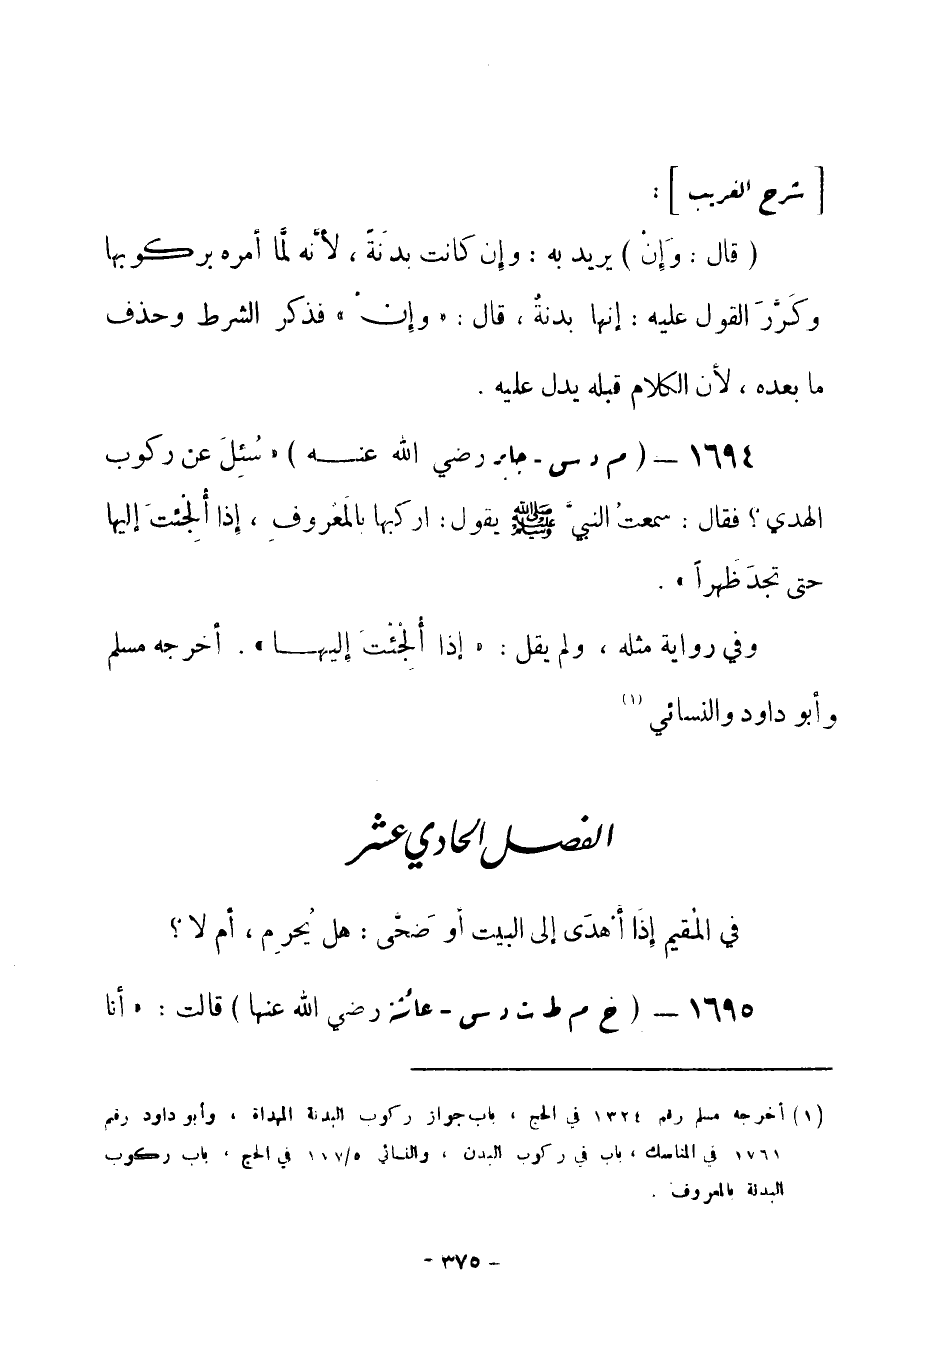 [ شرح الغريب ] :
( قال : وَإِنْ ) يريد به : وإن كانت بدَنَةً ، لأنَّه لمَّا أمره بركوبها
وكَرَّرَ القول عليه : إنها بدنةٌ ، قال : « وإنْ » فذكر الشرط وحذف
ما بعده ، لأن الكلام قبله يدل عليه .
١٦٩٤ – ( م د س - جابر رضي الله عنه ) « سُئِلَ عن ركوب
الهدي ؟ فقال : سمعتُ النبيَّ ﷺ يقول : اركبها بالمَعْروفِ ، إذا أُلْجِئْتَ إليها
حتى تجدَ ظَهراً » .
وفي رواية مثله ، ولم يقل : « إذا أُلْجِئْتَ إليها » . أخرجه مسلم
وأبو داود والنسائي (١)
الفصل الحادي عشر
في المُقيم إذَا أَهْدَى إلى البيت أو ضَحَّى : هل يُحْرِم ، أم لا ؟
١٦٩٥ – ( خ م ط ت د س - عائشة رضي الله عنها ) قالت : « أنا
(١) أخرجه مسلم رقم ١٣٢٤ في الحج ، باب جواز ركوب البدنة المهداة ، وأبو داود رقم
١٧٦١ في المناسك ، باب في ركوب البدن ، والنسائي ٥/١٧٧ في الحج ، باب ركوب
البدنة بالمعروف .
- ٣٧٥ -